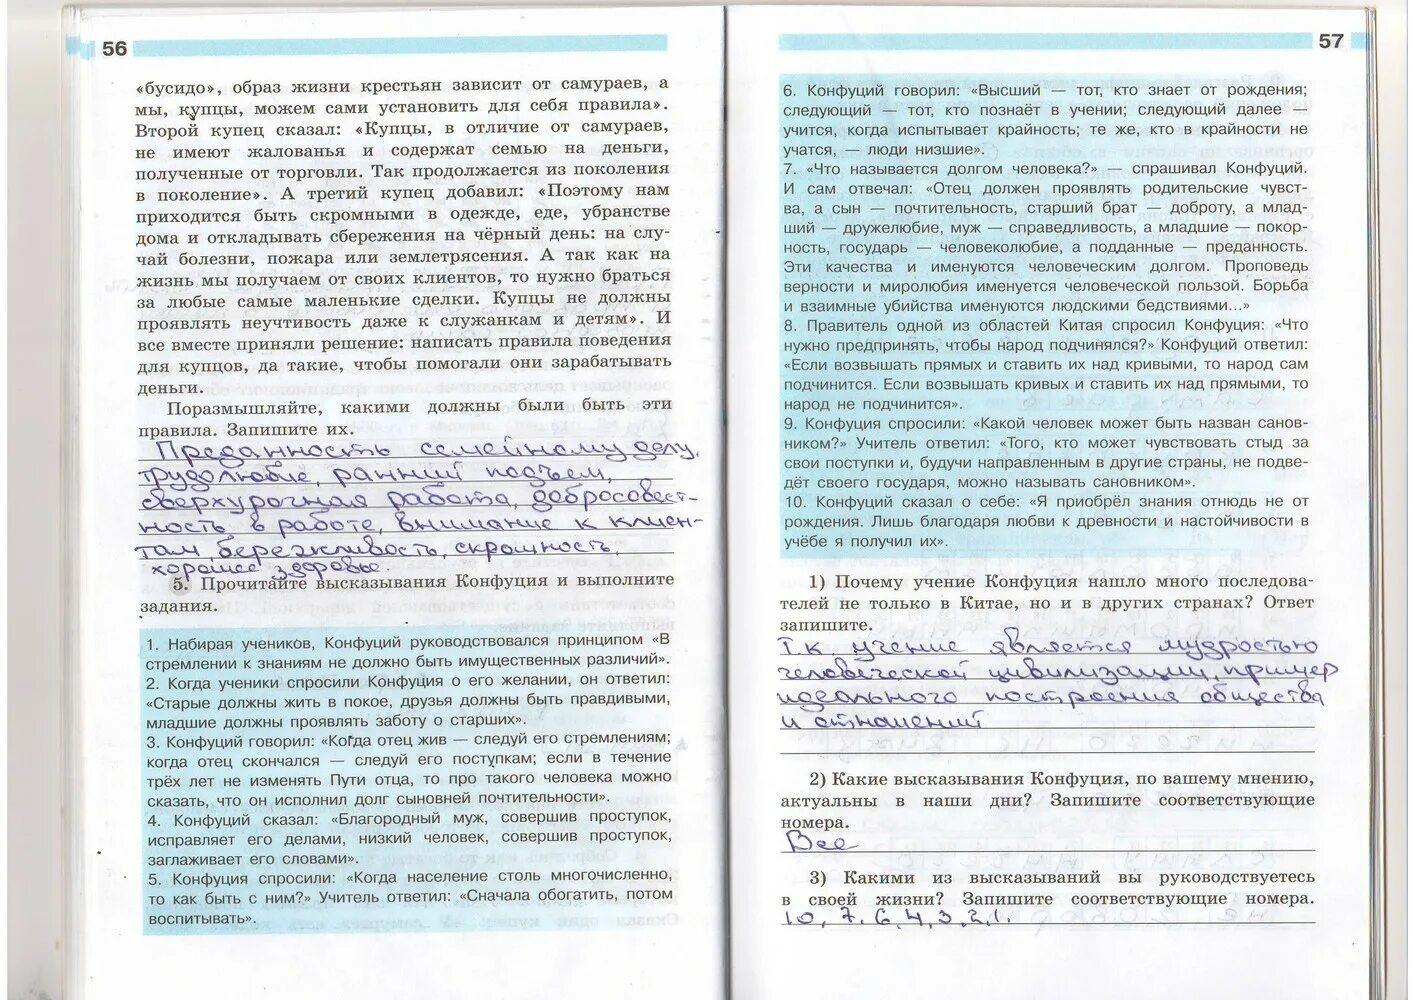 56
«бусидо», образ жизни крестьян зависит от самураев, а
мы, купцы, можем сами установить для себя правила».
Второй купец сказал: «Купцы, в отличие от самураев,
не имеют жалованья и содержат семью на деньги,
полученные от торговли. Так продолжается из поколения
в поколение». А третий купец добавил: «Поэтому нам
приходится быть скромными в одежде, еде, убранстве
дома и откладывать сбережения на чёрный день: на слу-
чай болезни, пожара или землетрясения. А так как на
жизнь мы получаем от своих клиентов, то нужно браться
за любые самые маленькие сделки. Купцы не должны
проявлять неучтивость даже к служанкам и детям». И
все вместе приняли решение: написать правила поведения
для купцов, да такие, чтобы помогали они зарабатывать
деньги.
Поразмышляйте, какими должны были быть эти
правила. Запишите их.
Преданность семейному делу,
трудолюбие, ранний подъем,
сверхурочная работа, добросовест-
ность в работе, внимание к клиен-
там, бережливость, скромность,
хорошее здоровье.
5. Прочитайте высказывания Конфуция и выполните
задания.
1. Набирая учеников, Конфуций руководствовался принципом «В
стремлении к знаниям не должно быть имущественных различий».
2. Когда ученики спросили Конфуция о его желании, он ответил:
«Старые должны жить в покое, друзья должны быть правдивыми,
младшие должны проявлять заботу о старших».
3. Конфуций говорил: «Когда отец жив — следуй его стремлениям;
когда отец скончался — следуй его поступкам; если в течение
трёх лет не изменять Пути отца, то про такого человека можно
сказать, что он исполнил долг сыновней почтительности».
4. Конфуций сказал: «Благородный муж, совершив проступок,
исправляет его делами, низкий человек, совершив проступок,
заглаживает его словами».
5. Конфуция спросили: «Когда население столь многочисленно,
то как быть с ним?» Учитель ответил: «Сначала обогатить, потом
воспитывать».
57
6. Конфуций говорил: «Высший — тот, кто знает от рождения;
следующий — тот, кто познаёт в учении; следующий далее —
учится, когда испытывает крайность; те же, кто в крайности не
учатся, — люди низшие».
7. «Что называется долгом человека?» — спрашивал Конфуций.
И сам отвечал: «Отец должен проявлять родительские чувст-
ва, а сын — почтительность, старший брат — доброту, а млад-
ший — дружелюбие, муж — справедливость, а младшие — покор-
ность, государь — человеколюбие, а подданные — преданность.
Эти качества и именуются человеческим долгом. Проповедь
верности и миролюбия именуется человеческой пользой. Борьба
и взаимные убийства именуются людскими бедствиями...»
8. Правитель одной из областей Китая спросил Конфуция: «Что
нужно предпринять, чтобы народ подчинялся?» Конфуций ответил:
«Если возвышать прямых и ставить их над кривыми, то народ сам
подчинится. Если возвышать кривых и ставить их над прямыми, то
народ не подчинится».
9. Конфуция спросили: «Какой человек может быть назван санов-
ником?» Учитель ответил: «Того, кто может чувствовать стыд за
свои поступки и, будучи направленным в другие страны, не подве-
дёт своего государя, можно называть сановником».
10. Конфуций сказал о себе: «Я приобрёл знания отнюдь не от
рождения. Лишь благодаря любви к древности и настойчивости в
учёбе я получил их».
1) Почему учение Конфуция нашло много последова-
телей не только в Китае, но и в других странах? Ответ
запишите.
Т.к. учение является мудростью
человеческой цивилизации, пример
идеального построения общества
и отношений
2) Какие высказывания Конфуция, по вашему мнению,
актуальны в наши дни? Запишите соответствующие
номера.
Все
3) Какими из высказываний вы руководствуетесь
в своей жизни? Запишите соответствующие номера.
10, 7, 6, 4, 3, 2, 1.